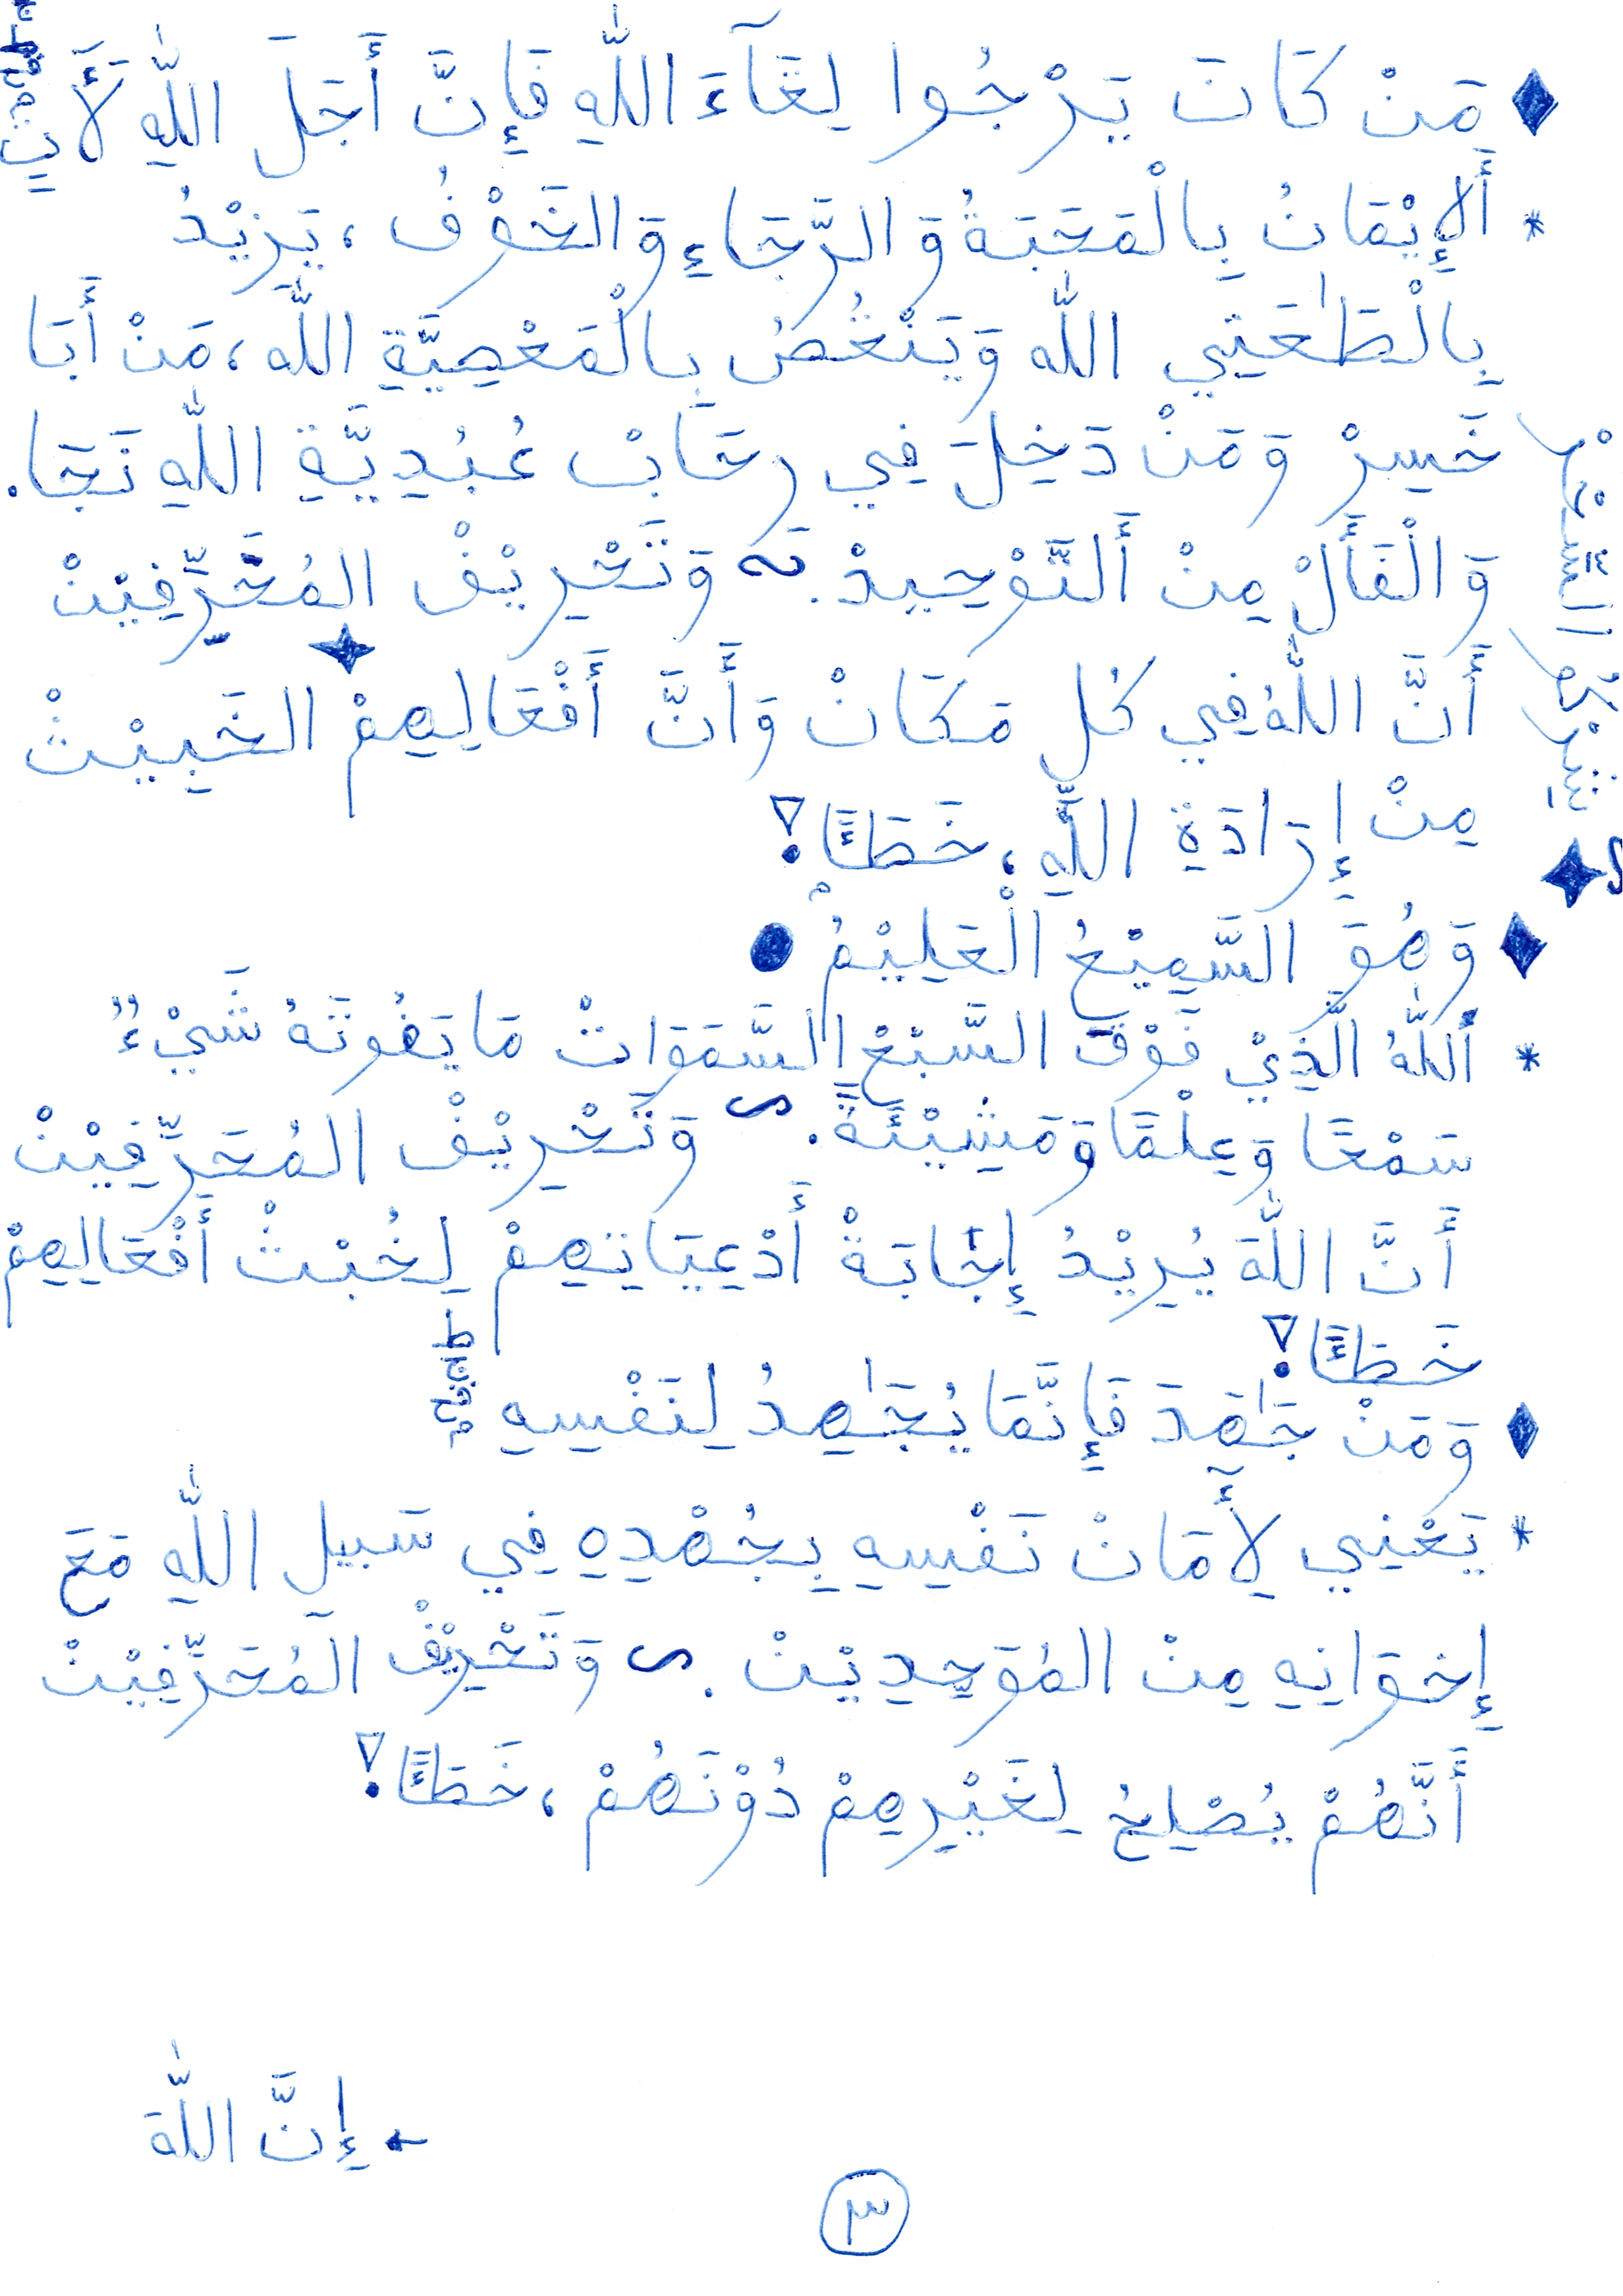 مَنْ كَانَ يَرْجُوا لِقَآءَ اللّٰهِ فَإِنَّ أَجَلَ اللّٰهِ لَأَتٍ
* أَلإِيْمَانُ بِالْمَحَبَةُ وَ الرَّجَاءِ وَ الخَوْفُ ، يَزِيْدُ
بِالْطَٰعَتِي اللّٰه وَيَنْغُصُ بِالْمَعْصِيَّةِ اللّٰه ، مَنْ أَبَا
خَسِرْ وَ مَنْ دَخِلَ فِي رحَابْ عُبُدِيَّةِ اللّٰهِ نَجَا .
وَ الْفَأَلْ مِنْ أَلتَّوْحِيدْ . وَتَحْرِيْفْ المُحَرِّفِيْنْ
أَنَّ اللّٰهُ فِي كُل مَكَانْ وَأَنَّ أَفْعَالِهِمْ الخَبِيْثْ
مِنْ إِرَادَةِ اللّٰهِ ، خَطَأً !
وَ هُوَ السَّمِيْعُ الْعَلِيْمُ
* أَللّٰهُ الَّذِيْ فَوْقَ السَّبْعْ السَّمَوَاتْ مَا يَفُوتَهُ شَيْءٌ
سَمْعًا وَ عِلْمًا وَ مَشِيْئَةً . وَتَحْرِيْفْ المُحَرِّفِيْنْ
أَنَّ اللّٰهَ يُرِيْدُ إِجَابَةْ أَدْعِيَاتِهِمْ لِخُبْثْ أَفْعَالِهِمْ
خَطَأً !
وَ مَنْ جَٰهَدَ فَإِنَّمَا يُجَٰهِدُ لِنَفْسِهِ
* يَعْنِي لِأَمَانْ نَفْسِهِ بِجُهْدِهِ فِي سَبِيلِ اللّٰهِ مَعَ
إِخوَانِهِ مِنْ المُوَحِدِيْنْ . وَتَحْرِيْفْ المُحَرِّفِيْنْ
أَنَّهُمْ يُصْلِحُ لِغَيْرِهِمْ دُوْنَهُمْ ، خَطَأً !
← إِنَّ اللّٰهَ
٣